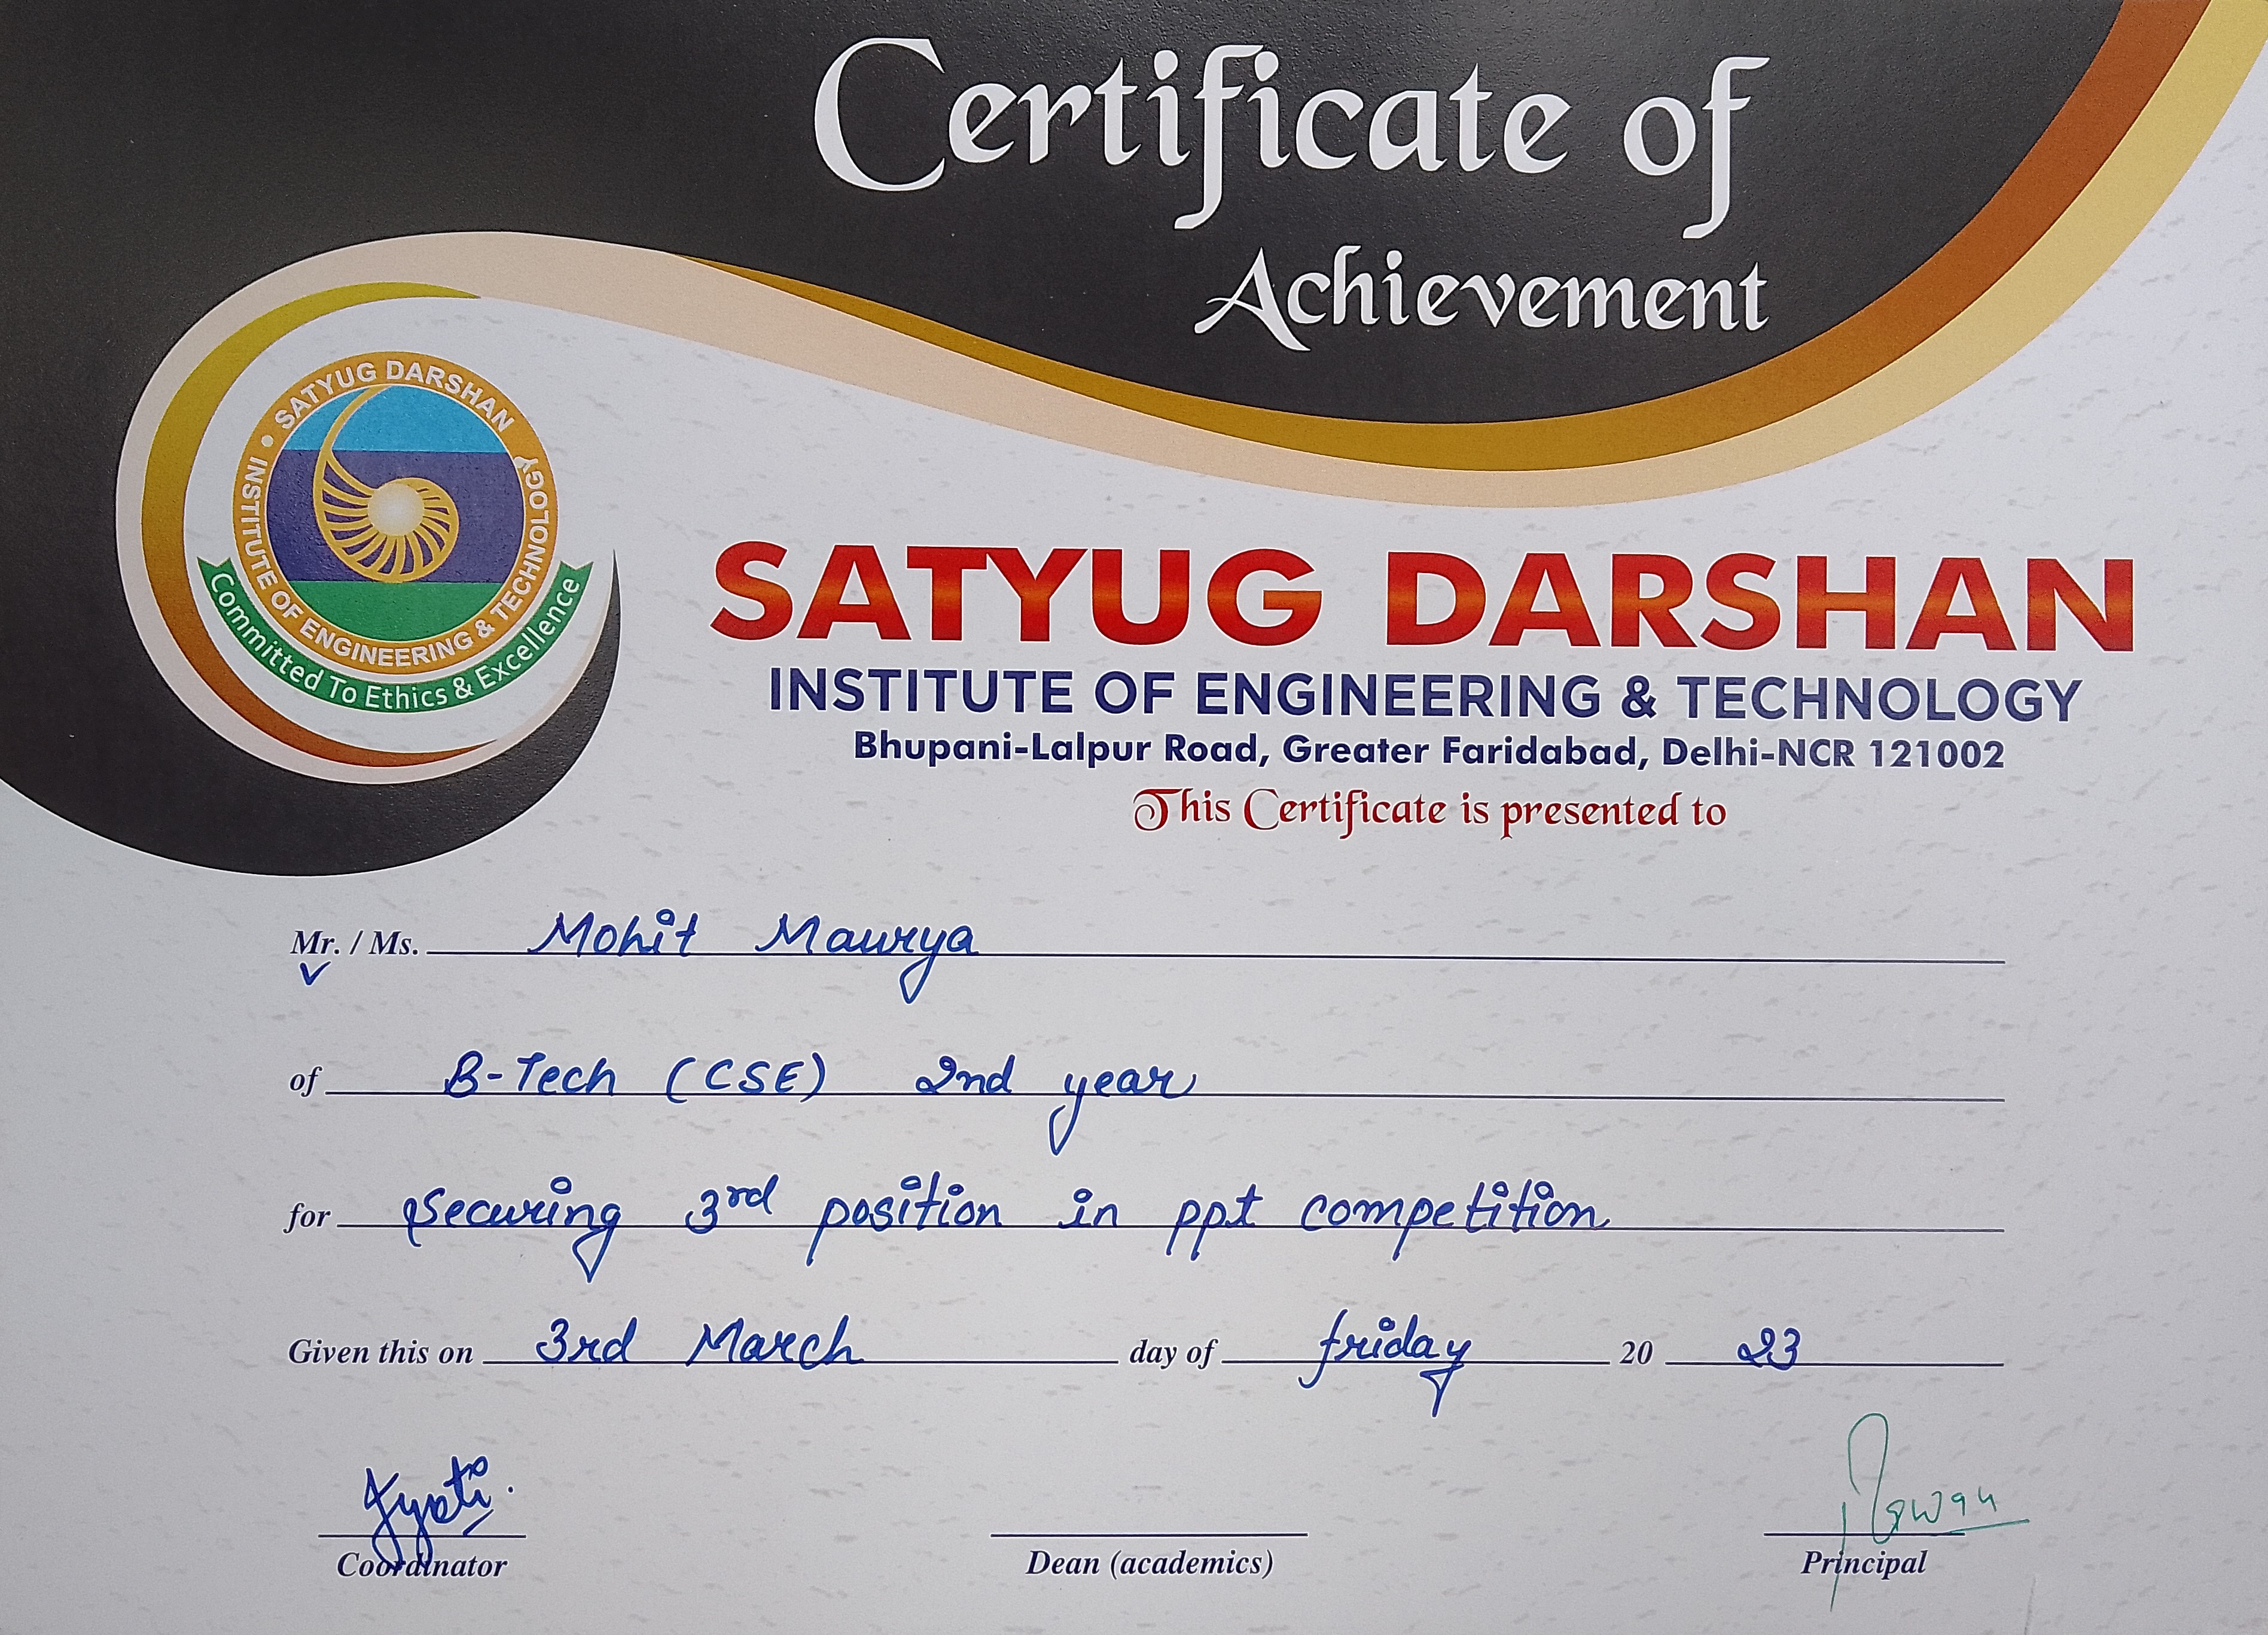 Certificate of
Achievement
SATYUG DARSHAN
INSTITUTE OF ENGINEERING & TECHNOLOGY
Committed To Ethics & Excellence
SATYUG DARSHAN
INSTITUTE OF ENGINEERING & TECHNOLOGY
Bhupani-Lalpur Road, Greater Faridabad, Delhi-NCR 121002
This Certificate is presented to
Mr. / Ms. Mohit Maurya
of B-Tech (CSE) 2nd year
for Securing 3rd position in ppt competition
Given this on 3rd March day of friday 20 23
Jyoti. Pawan
Coordinator Dean (academics) Principal